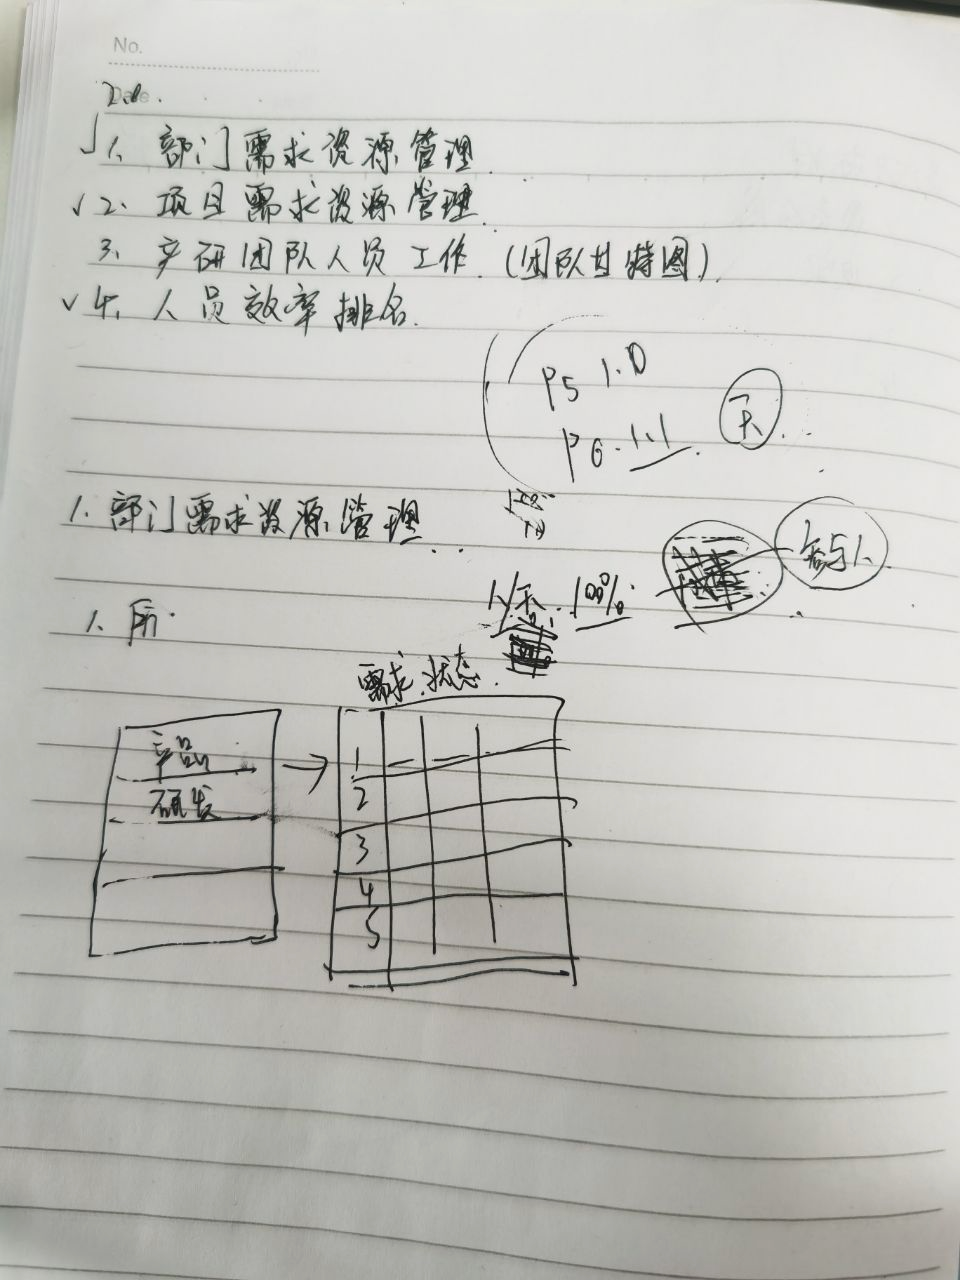 No.
Date
√1、部门需求资源管理
√2、项目需求资源管理
3、产研团队人员工作（团队甘特图）
√4、人员效率排名
P5 1.0
P6 1.1
天
1、部门需求资源管理
100%
参与人
1、
需求 状态
产品
研发
1
2
3
4
5